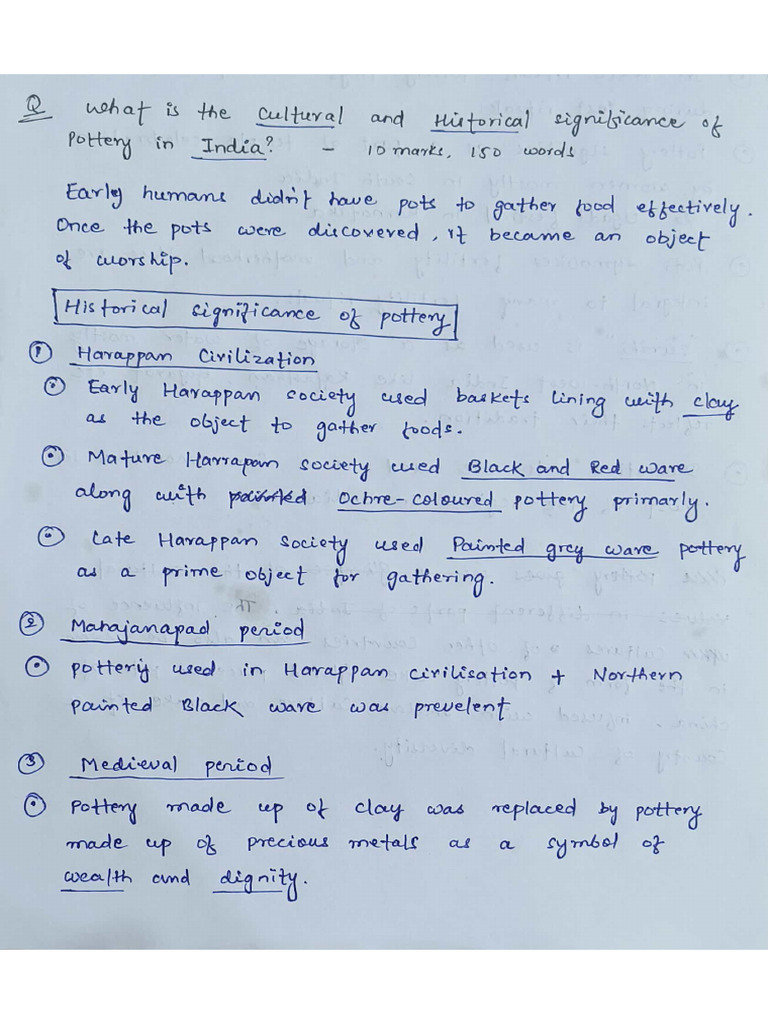 Q What is the Cultural and Historical significance of
Pottery in India? - 10 marks, 150 words
Early humans didn't have pots to gather food effectively.
Once the pots were discovered, it became an object
of worship.
Historical significance of pottery
① Harappan Civilization
⊙ Early Harappan society used baskets lining with clay
as the object to gather foods.
⊙ Mature Harrapan society used Black and Red ware
along with painted Ochre-coloured pottery primarly.
⊙ Late Harappan society used Painted grey ware pottery
as a prime object for gathering.
② Mahajanapad period
⊙ pottery used in Harappan civilisation + Northern
painted Black ware was prevelent
③ Medieval period
⊙ Pottery made up of clay was replaced by pottery
made up of precious metals as a symbol of
wealth and dignity.